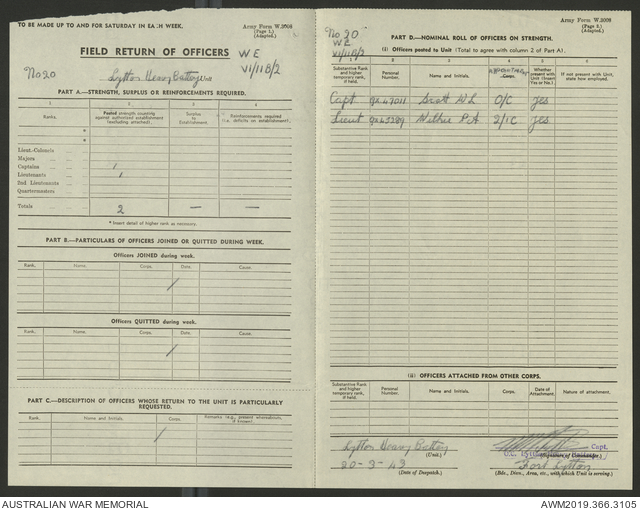 TO BE MADE UP TO AND FOR SATURDAY IN EACH WEEK.
Army Form W.3008
(Page 1.)
(Adapted.)
FIELD RETURN OF OFFICERS
W E
VI/11B/2
No 20
Lytton Heavy Battery Unit
PART A.—STRENGTH, SURPLUS OR REINFORCEMENTS REQUIRED.
1 2 3 4
Ranks.
Posted strength counting against authorized establishment (excluding attached).
Surplus to Establishment.
Reinforcements required (i.e. deficits on establishment).
*
*
Lieut.-Colonels
Majors
Captains 1
Lieutenants 1
2nd Lieutenants
Quartermasters
Totals 2 — —
* Insert detail of higher rank as necessary.
PART B.—PARTICULARS OF OFFICERS JOINED OR QUITTED DURING WEEK.
Officers JOINED during week.
Rank. Name. Corps. Date. Cause.
/
Officers QUITTED during week.
Rank. Name. Corps. Date. Cause.
/
PART C.—DESCRIPTION OF OFFICERS WHOSE RETURN TO THE UNIT IS PARTICULARLY REQUESTED.
Rank. Name and Initials. Corps. Remarks (e.g., present whereabouts, if known).
/
Army Form W.3008
(Page 2.)
(Adapted.)
No 20
W E
VI/11B/2
PART D.—NOMINAL ROLL OF OFFICERS ON STRENGTH.
(i) Officers posted to Unit (Total to agree with column 2 of Part A).
Substantive Rank and higher temporary rank, if held.
Personal Number.
Name and Initials.
Corps.
Whether present with Unit (Insert Yes or No.)
If not present with Unit, state how employed.
Capt QX47011 Scott W.L O/C yes
Lieut QX43289 P.A 2/IC yes
(ii) OFFICERS ATTACHED FROM OTHER CORPS.
Substantive Rank and higher temporary rank, if held.
Personal Number.
Name and Initials.
Corps.
Date of Attachment.
Nature of attachment.
Lytton Heavy Battery
(Unit.)
Capt.
O.C.
20-3-43
(Date of Despatch.)
Fort Lytton
(Bde., Divn., Area, etc., with which Unit is serving.)
AUSTRALIAN WAR MEMORIAL
AWM2019.366.3105